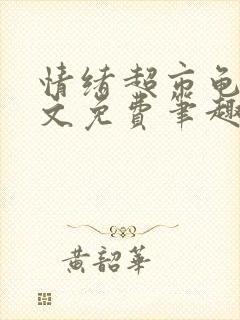 情绪超市龟
文免费笔趣
黄韶华